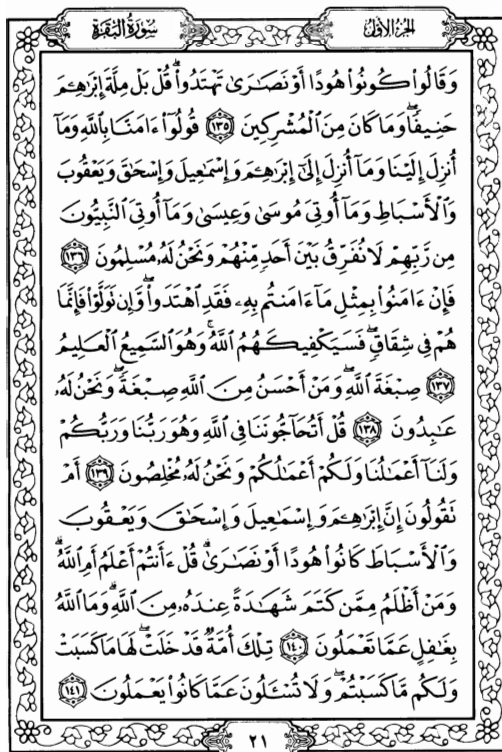 سورة البقرة
الجزء الأول
وَقَالُوا۟ كُونُوا۟ هُودًا أَوْ نَصَٰرَىٰ تَهْتَدُوا۟ۗ قُلْ بَلْ مِلَّةَ إِبْرَٰهِـۧمَ
حَنِيفًاۖ وَمَا كَانَ مِنَ ٱلْمُشْرِكِينَ ١٣٥ قُولُوٓا۟ ءَامَنَّا بِٱللَّهِ وَمَآ
أُنزِلَ إِلَيْنَا وَمَآ أُنزِلَ إِلَىٰٓ إِبْرَٰهِـۧمَ وَإِسْمَٰعِيلَ وَإِسْحَٰقَ وَيَعْقُوبَ
وَٱلْأَسْبَاطِ وَمَآ أُوتِىَ مُوسَىٰ وَعِيسَىٰ وَمَآ أُوتِىَ ٱلنَّبِيُّونَ
مِن رَّبِّهِمْ لَا نُفَرِّقُ بَيْنَ أَحَدٍ مِّنْهُمْ وَنَحْنُ لَهُۥ مُسْلِمُونَ ١٣٦
فَإِنْ ءَامَنُوا۟ بِمِثْلِ مَآ ءَامَنتُم بِهِۦ فَقَدِ ٱهْتَدَوا۟ۖ وَّإِن تَوَلَّوْا۟ فَإِنَّمَا
هُمْ فِى شِقَاقٍۖ فَسَيَكْفِيكَهُمُ ٱللَّهُۚ وَهُوَ ٱلسَّمِيعُ ٱلْعَلِيمُ
١٣٧ صِبْغَةَ ٱللَّهِۖ وَمَنْ أَحْسَنُ مِنَ ٱللَّهِ صِبْغَةًۖ وَنَحْنُ لَهُۥ
عَٰبِدُونَ ١٣٨ قُلْ أَتُحَآجُّونَنَا فِى ٱللَّهِ وَهُوَ رَبُّنَا وَرَبُّكُمْ
وَلَنَآ أَعْمَٰلُنَا وَلَكُمْ أَعْمَٰلُكُمْ وَنَحْنُ لَهُۥ مُخْلِصُونَ ١٣٩ أَمْ
تَقُولُونَ إِنَّ إِبْرَٰهِـۧمَ وَإِسْمَٰعِيلَ وَإِسْحَٰقَ وَيَعْقُوبَ
وَٱلْأَسْبَاطَ كَانُوا۟ هُودًا أَوْ نَصَٰرَىٰۗ قُلْ ءَأَنتُمْ أَعْلَمُ أَمِ ٱللَّهُۗ
وَمَنْ أَظْلَمُ مِمَّن كَتَمَ شَهَٰدَةً عِندَهُۥ مِنَ ٱللَّهِۗ وَمَا ٱللَّهُ
بِغَٰفِلٍ عَمَّا تَعْمَلُونَ ١٤٠ تِلْكَ أُمَّةٌ قَدْ خَلَتْۖ لَهَا مَا كَسَبَتْ
وَلَكُم مَّا كَسَبْتُمْۖ وَلَا تُسْـَٔلُونَ عَمَّا كَانُوا۟ يَعْمَلُونَ ١٤١
٢١